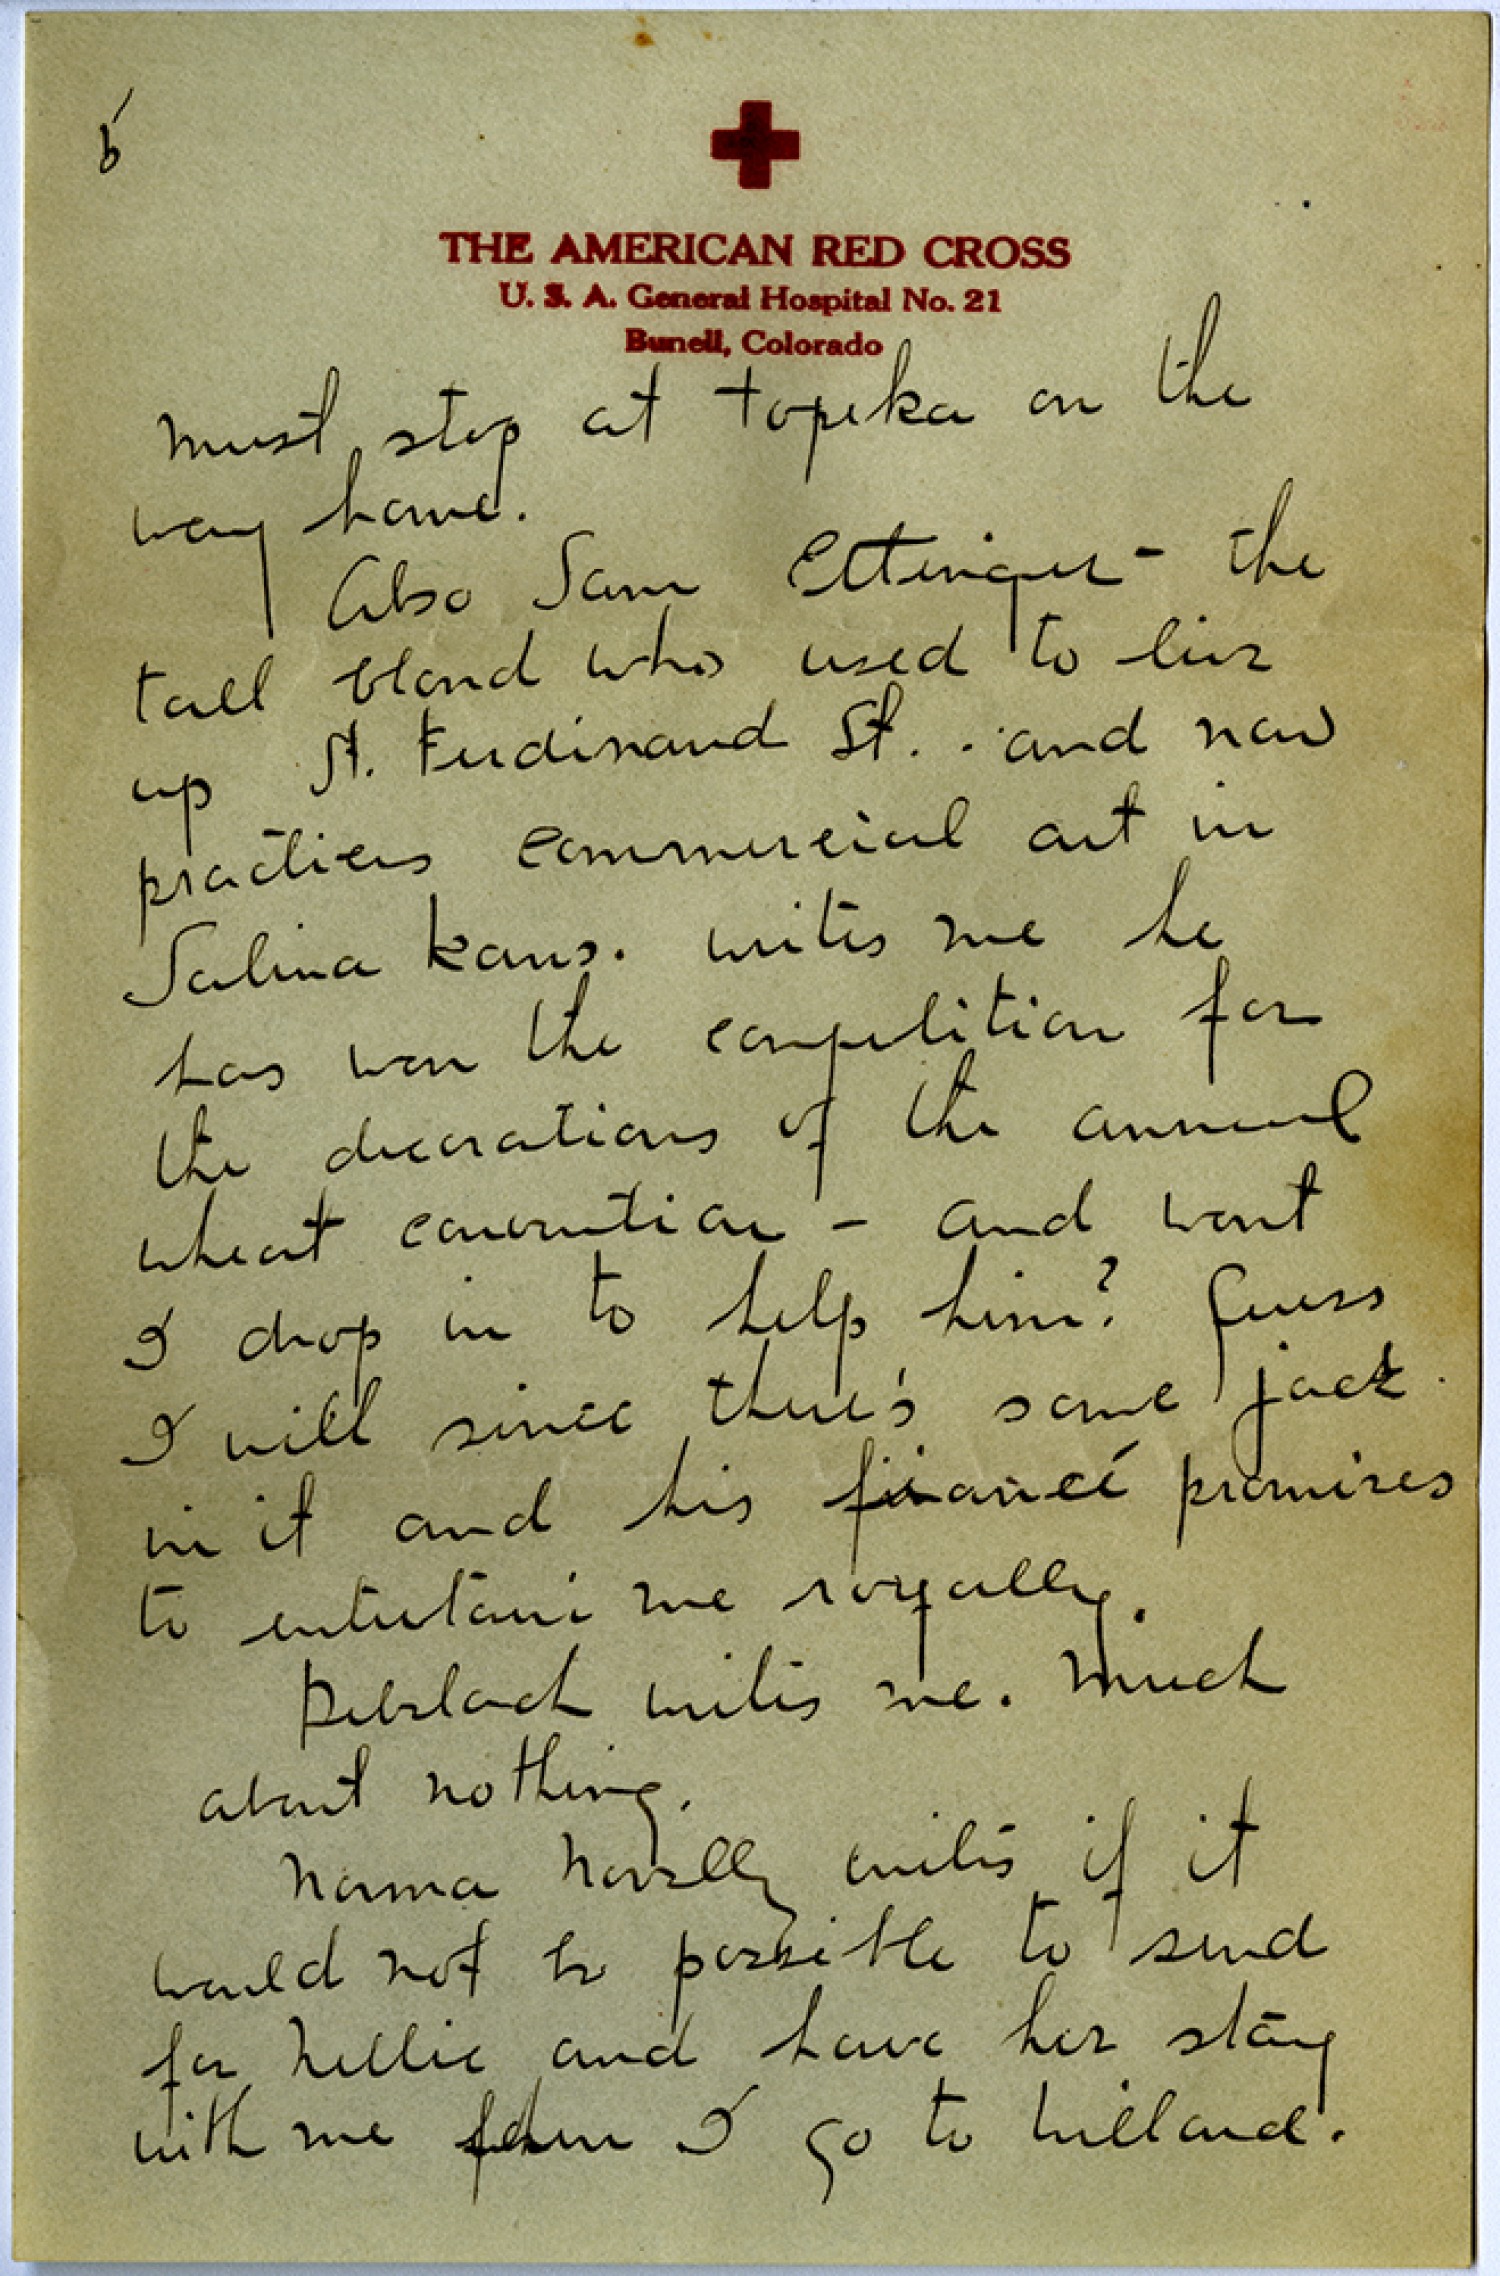 5
THE AMERICAN RED CROSS
U. S. A. General Hospital No. 21
Bunell, Colorado
must stop at Topeka on the
way home.
Also Sam Ettinger - the
tall blond who used to live
up St. Ferdinand St. . and now
practices commercial art in
Salina Kans. writes me he
has won the competition for
the decorations of the annual
wheat convention - and wont
I drop in to help him? Guess
I will since there's some jack
in it and his fiancé promises
to entertain me royally.
writes me. Much
about nothing.
Norma writes if it
would not be possible to send
for Nellie and have her stay
with me I go to